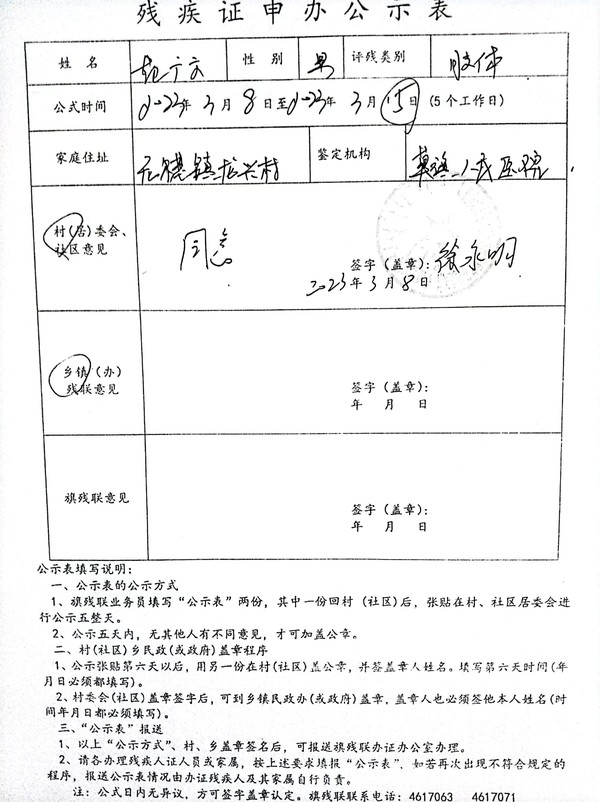 残疾证申办公示表
姓名 赵广文 性别 男 评残类别 肢体
公式时间 2023年3月8日至2023年3月15日(5个工作日)
家庭住址 龙兴村 鉴定机构 莫旗人民医院
村(居)委会、
社区意见
同意
签字(盖章): 徐永明
2023年3月8日
乡镇(办)
残联意见
签字(盖章):
年 月 日
旗残联意见
签字(盖章):
年 月 日
公示表填写说明:
一、公示表的公示方式
1、旗残联业务员填写“公示表”两份,其中一份回村(社区)后,张贴在村、社区居委会进
行公示五整天。
2、公示五天内,无其他人有不同意见,才可加盖公章。
二、村(社区)乡民政(或政府)盖章程序
1、公示张贴第六天以后,用另一份在村(社区)盖公章,并签盖章人姓名。填写第六天时间(年
月日必须都填写)。
2、村委会(社区)盖章签字后,可到乡镇民政办(或政府)盖章,盖章人也必须签他本人姓名(时
间年月日都必须填写)。
三、“公示表”报送
1、以上“公示方式”、村、乡盖章签名后,可报送旗残联办证办公室办理。
2、请各办理残疾人证人员或家属,按上述要求填报“公示表”,如若再次出现不符合规定的
程序,报送公示表情况由办证残疾人及其家属自行负责。
注:公式日内无异议,方可签字盖章认定。旗残联联系电话:4617063 4617071